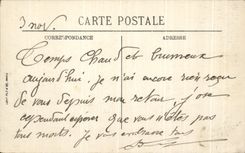 3 nov.
CARTE POSTALE
CORRESPONDANCE
ADRESSE
Temps chaud et brumeux
aujourd'hui. Je n'ai encore rien reçu
de vous depuis mon retour. J'ose
cependant espérer que vous n'êtes pas
tous morts. Je vous embrasse tous